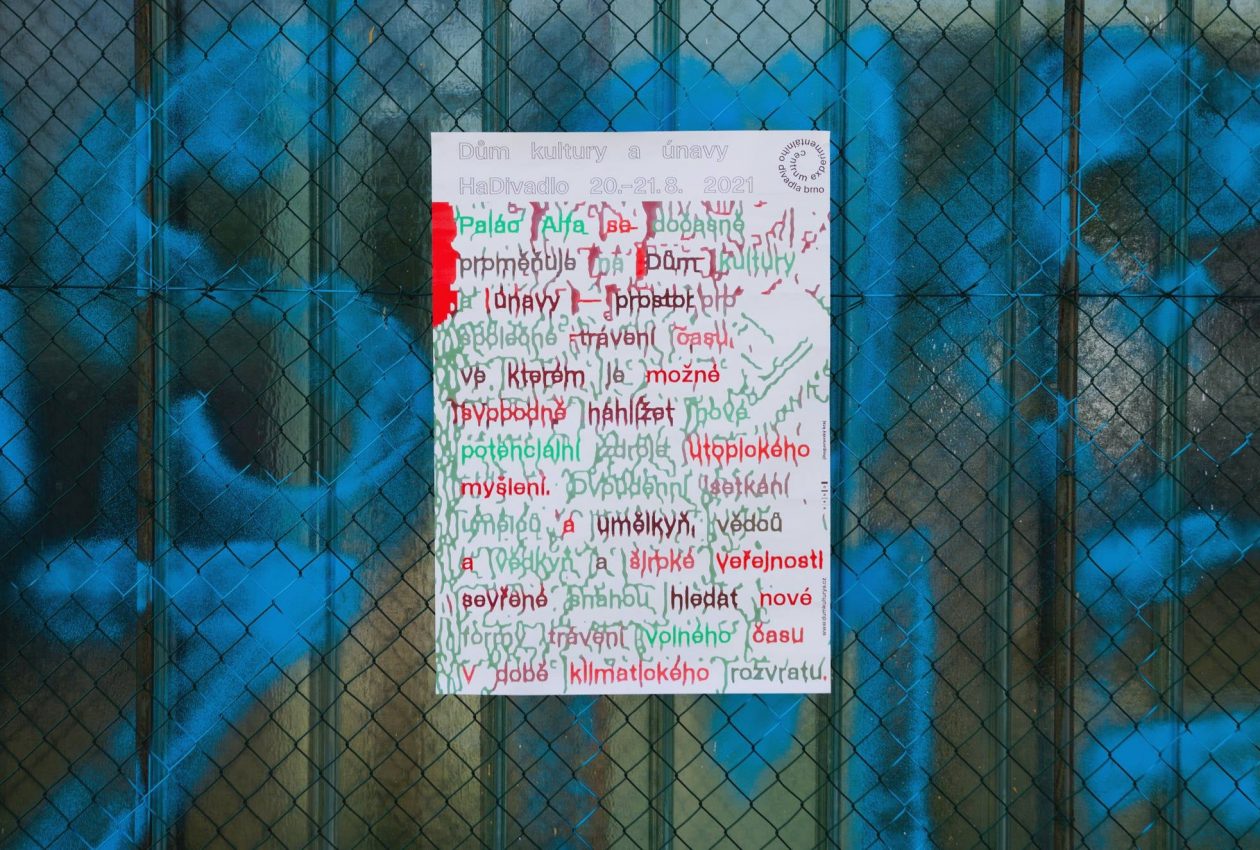 Dům kultury a únavy
HaDivadlo 20.–21. 8. 2021
centrum experimentálního divadla brno
Palác Alfa se dočasně
proměňuje na Dům kultury
a únavy — prostor pro
společné trávení času,
ve kterém je možné
svobodně nahlížet nové
potenciální zdroje utopického
myšlení. Dvoudenní setkání
umělců a umělkyň, vědců
a vědkyň a široké veřejnosti
sevřené snahou hledat nové
formy trávení volného času
v době klimatického rozvratu.
www.dumkultury.cz